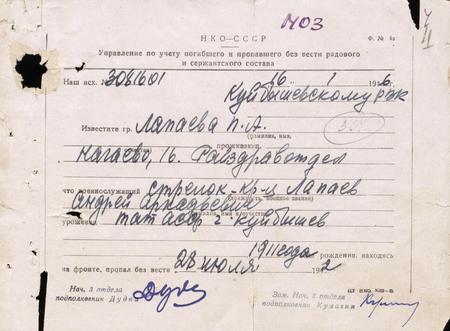 МОЗ
НКО—СССР
Ф. №
Управление по учету погибшего и пропавшего без вести рядового
и сержантского состава
Наш исх. № 3081601 16 1 1946
Куйбышевскому РВК
Известите гр. Лапаева П. А.
(фамилия, имя,
проживающ
Нагаево, 16. Райздравотдел
что военнослужащий стрелок-кр-ц Лапаев
(должность, военное звание)
Андрей Аркадьевич
уроженец Тат АССР г. Куйбышев
1911 года рождения, находясь
на фронте, пропал без вести 28 июля 1942
Нач. 3 отдела
подполковник Дудк
Зам. Нач. 3 отдела
подполковник Кулагин